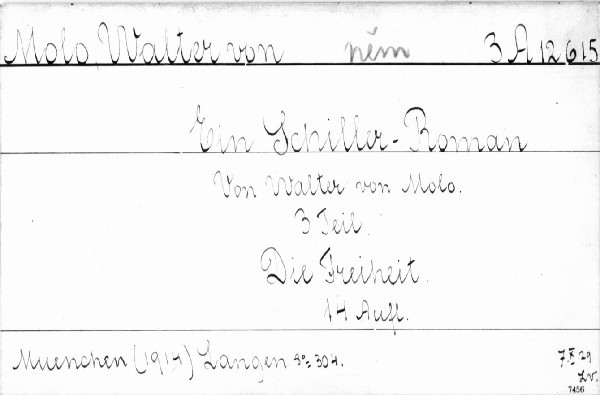 Molo, Walter von něm 3 A 12615
Ein Schiller-Roman
Von Walter von Molo.
3 Teil.
Die Freiheit.
14 Aufl.
Muenchen (1914) Langen 8° 304.
7.X 29
Lv.
7456